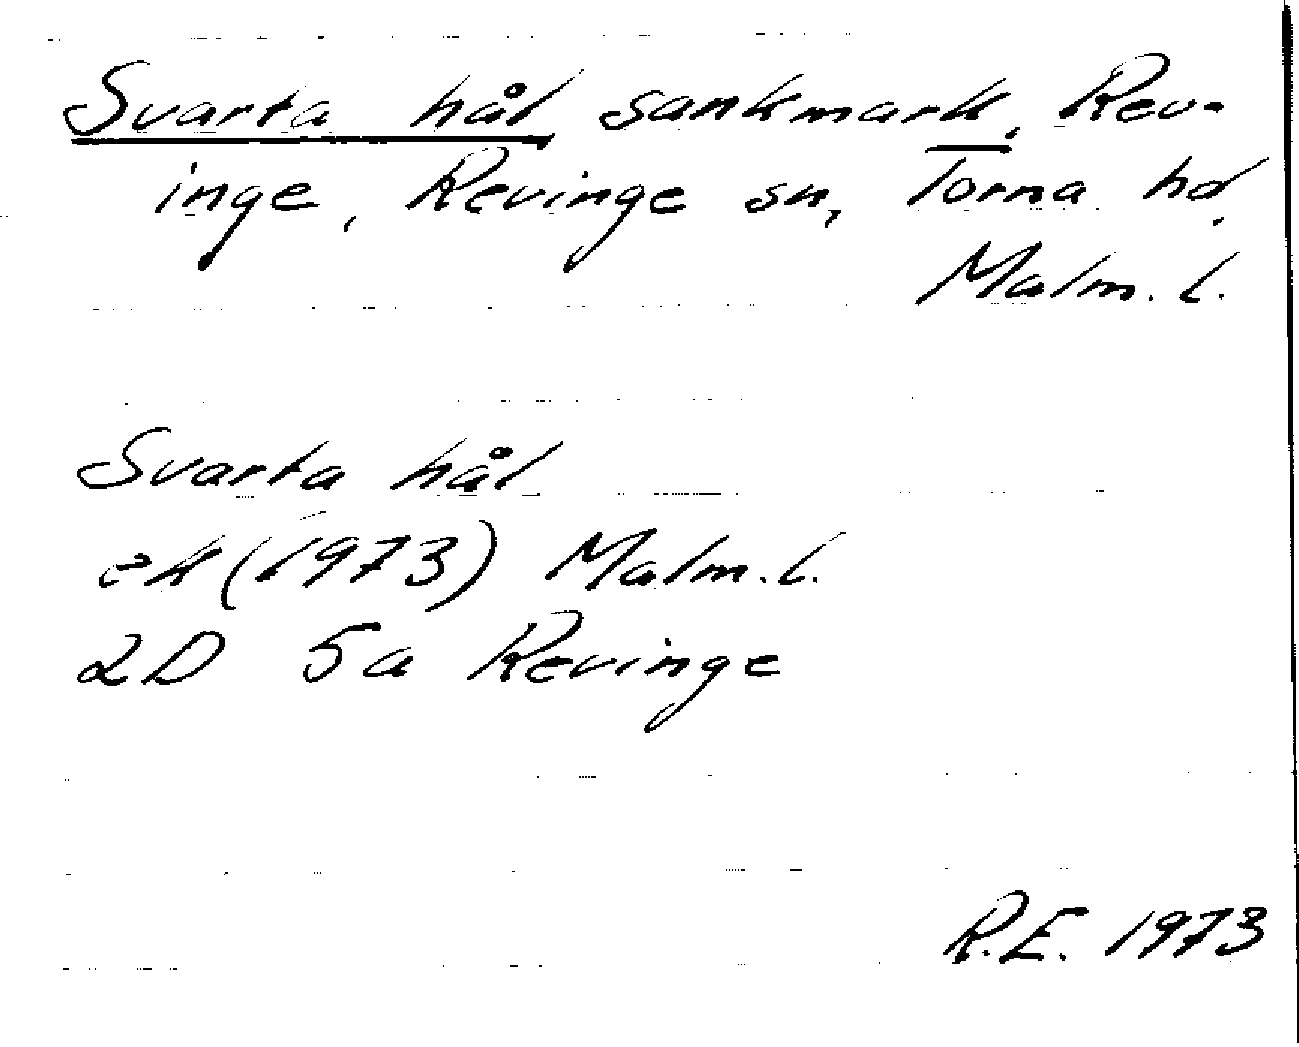 Svarta hål sankmark, Rev-
inge, Revinge sn, Torna hd,
Malm. l.
Svarta hål
ek (1973) Malm. l.
2D 5a Revinge
R.E. 1973